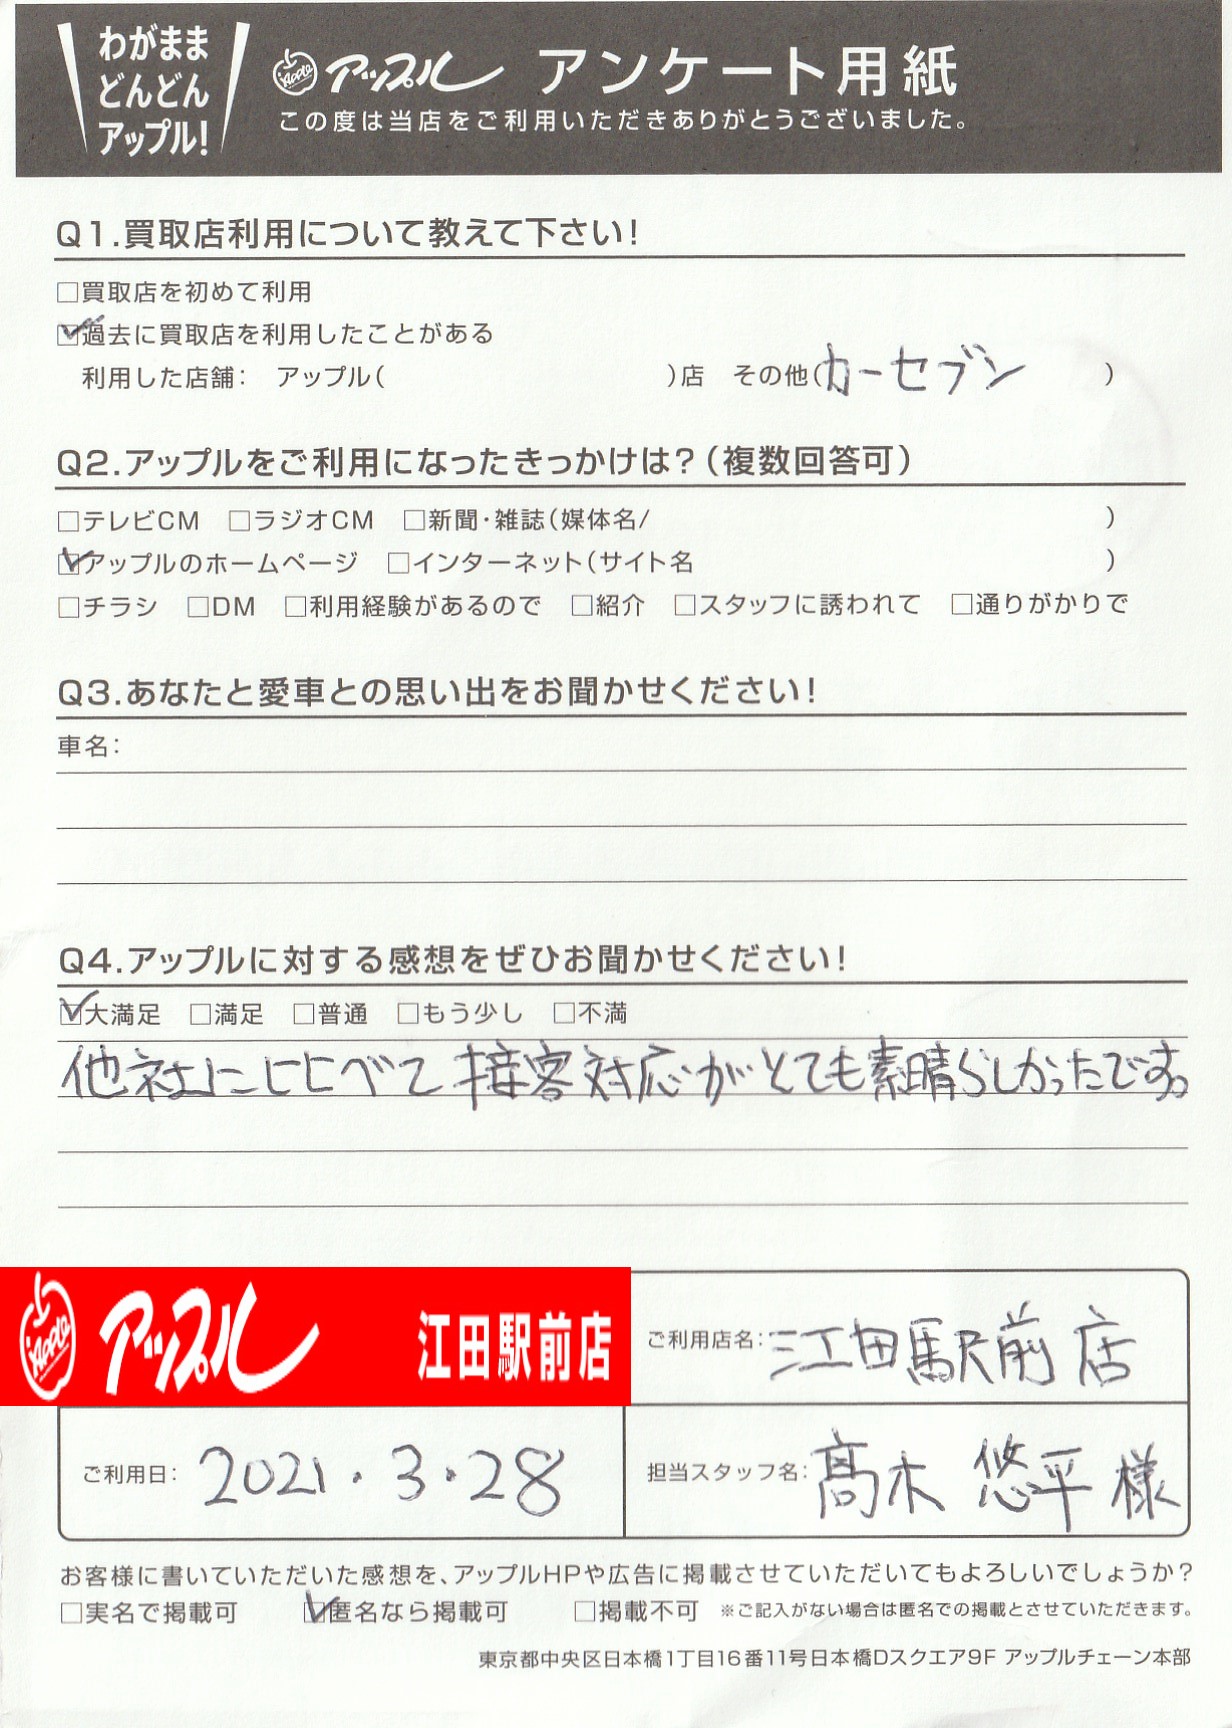 わがまま
どんどん
アップル!
Apple アップル アンケート用紙
この度は当店をご利用いただきありがとうございました。
Q1.買取店利用について教えて下さい!
□買取店を初めて利用
☑過去に買取店を利用したことがある
利用した店舗: アップル( )店 その他(カーセブン )
Q2.アップルをご利用になったきっかけは?(複数回答可)
□テレビCM □ラジオCM □新聞・雑誌(媒体名/ )
☑アップルのホームページ □インターネット(サイト名 )
□チラシ □DM □利用経験があるので □紹介 □スタッフに誘われて □通りがかりで
Q3.あなたと愛車との思い出をお聞かせください!
車名:
Q4.アップルに対する感想をぜひお聞かせください!
☑大満足 □満足 □普通 □もう少し □不満
他社にヒヒべて接客対応がとても素晴らしかったです。
Apple アップル 江田駅前店
ご利用店名:江田駅前店
ご利用日:2021.3.28
担当スタッフ名:髙木 悠平 様
お客様に書いていただいた感想を、アップルHPや広告に掲載させていただいてもよろしいでしょうか?
□実名で掲載可 ☑匿名なら掲載可 □掲載不可 ※ご記入がない場合は匿名での掲載とさせていただきます。
東京都中央区日本橋1丁目16番11号日本橋Dスクエア9F アップルチェーン本部